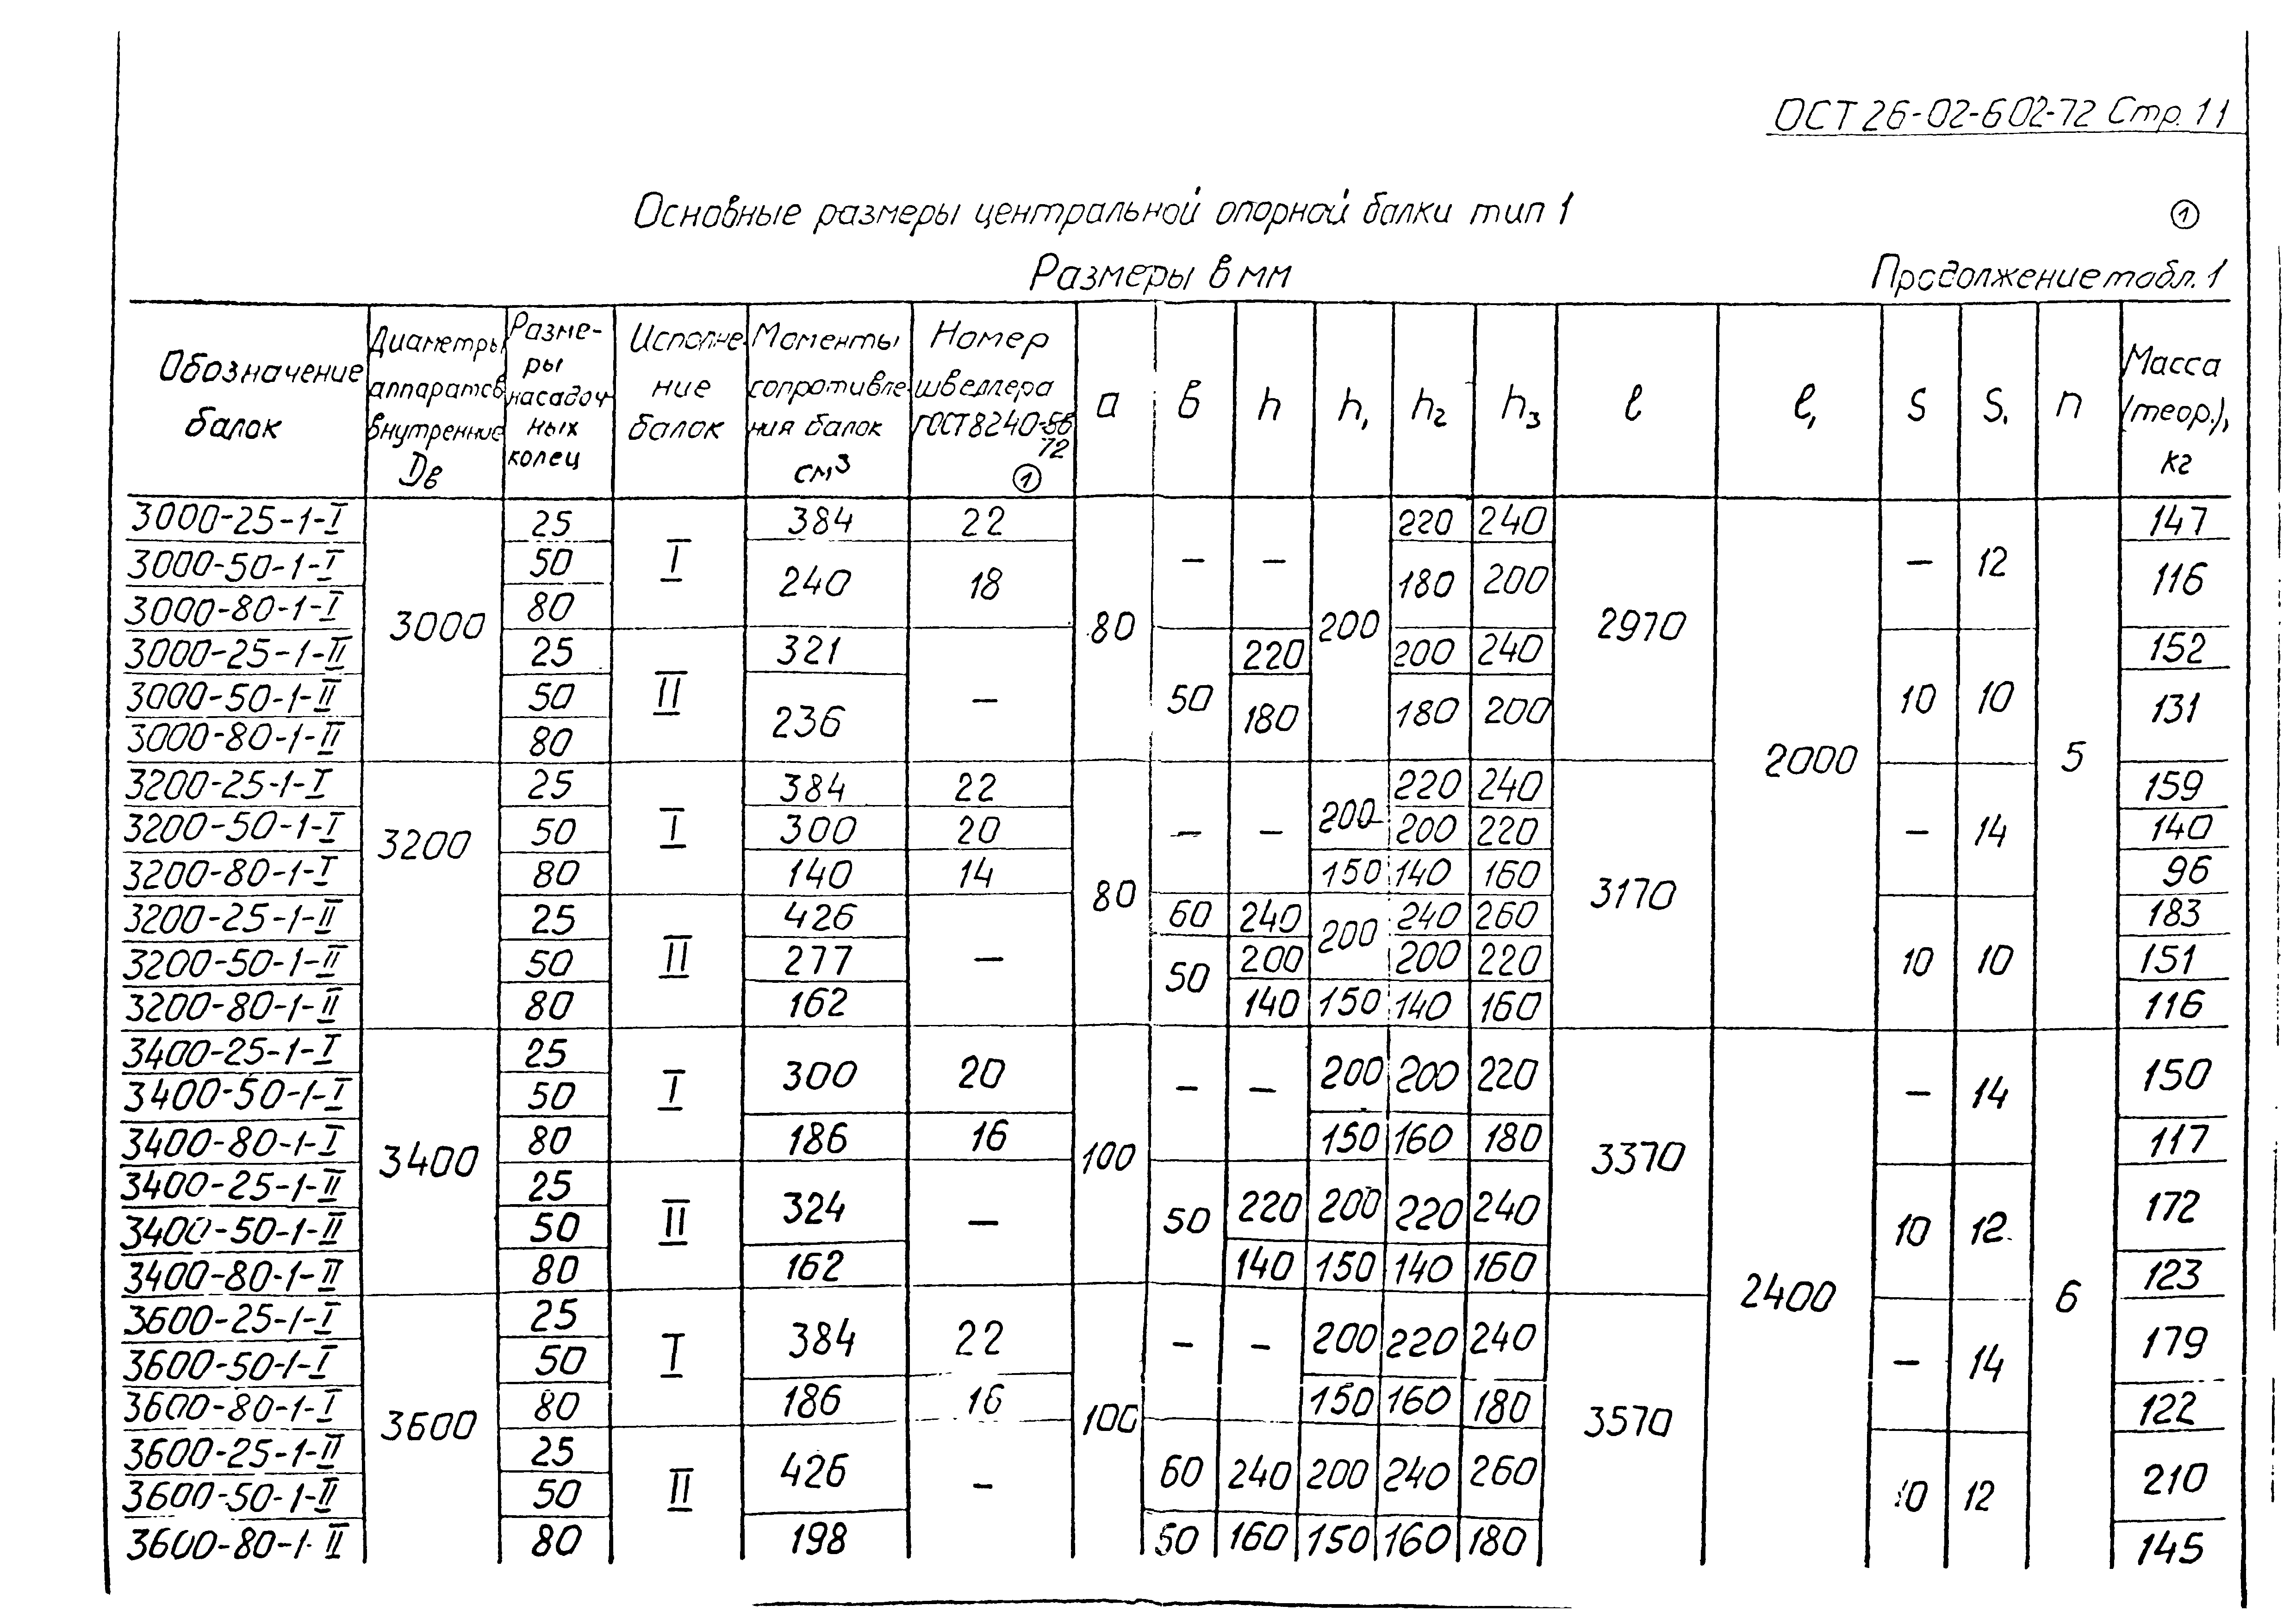 ОСТ 26-02-602-72 Стр. 11
Основные размеры центральной опорной балки тип 1
①
Размеры в мм
Продолжение табл. 1
Обозначение балок | Диаметры аппаратов внутренние Dв | Разме-ры насадоч-ных колец | Исполне-ние балок | Моменты сопротивле-ния балок см³ | Номер швеллера ГОСТ 8240-56 72 ① | a | в | h | h₁ | h₂ | h₃ | ℓ | ℓ₁ | S | S₁ | n | Масса (теор.), кг
3000-25-1-I | 3000 | 25 | I | 384 | 22 | 80 | – | – | 200 | 220 | 240 | 2970 | 2000 | – | 12 | 5 | 147
3000-50-1-I | 50 | 240 | 18 | 180 | 200 | 116
3000-80-1-I | 80
3000-25-1-II | 25 | II | 321 | – | 50 | 220 | 200 | 240 | 10 | 10 | 152
3000-50-1-II | 50 | 236 | 180 | 180 | 200 | 131
3000-80-1-II | 80
3200-25-1-I | 3200 | 25 | I | 384 | 22 | 80 | – | – | 200 | 220 | 240 | 3170 | – | 14 | 159
3200-50-1-I | 50 | 300 | 20 | 200 | 220 | 140
3200-80-1-I | 80 | 140 | 14 | 150 | 140 | 160 | 96
3200-25-1-II | 25 | II | 426 | – | 60 | 240 | 200 | 240 | 260 | 10 | 10 | 183
3200-50-1-II | 50 | 277 | 50 | 200 | 200 | 220 | 151
3200-80-1-II | 80 | 162 | 140 | 150 | 140 | 160 | 116
3400-25-1-I | 3400 | 25 | I | 300 | 20 | 100 | – | – | 200 | 200 | 220 | 3370 | 2400 | – | 14 | 6 | 150
3400-50-1-I | 50
3400-80-1-I | 80 | 186 | 16 | 150 | 160 | 180 | 117
3400-25-1-II | 25 | II | 324 | – | 50 | 220 | 200 | 220 | 240 | 10 | 12 | 172
3400-50-1-II | 50
3400-80-1-II | 80 | 162 | 140 | 150 | 140 | 160 | 123
3600-25-1-I | 3600 | 25 | I | 384 | 22 | 100 | – | – | 200 | 220 | 240 | 3570 | – | 14 | 179
3600-50-1-I | 50
3600-80-1-I | 80 | 186 | 16 | 150 | 160 | 180 | 122
3600-25-1-II | 25 | II | 426 | – | 60 | 240 | 200 | 240 | 260 | 10 | 12 | 210
3600-50-1-II | 50
3600-80-1-II | 80 | 198 | 50 | 160 | 150 | 160 | 180 | 145